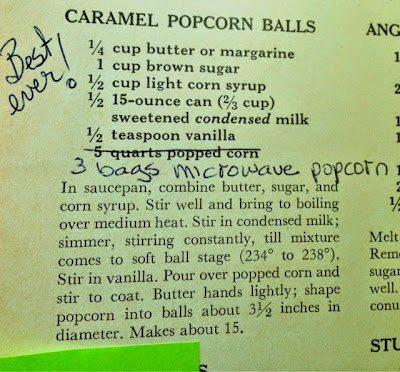 CARAMEL POPCORN BALLS
Best
ever!
¼ cup butter or margarine
1 cup brown sugar
½ cup light corn syrup
½ 15-ounce can (⅔ cup)
sweetened condensed milk
½ teaspoon vanilla
5 quarts popped corn
3 bags microwave popcorn
In saucepan, combine butter, sugar, and
corn syrup. Stir well and bring to boiling
over medium heat. Stir in condensed milk;
simmer, stirring constantly, till mixture
comes to soft ball stage (234° to 238°).
Stir in vanilla. Pour over popped corn and
stir to coat. Butter hands lightly; shape
popcorn into balls about 3½ inches in
diameter. Makes about 15.
ANG
1
2
1
1
½
Melt
Remo
sugar
well.
conu
STU